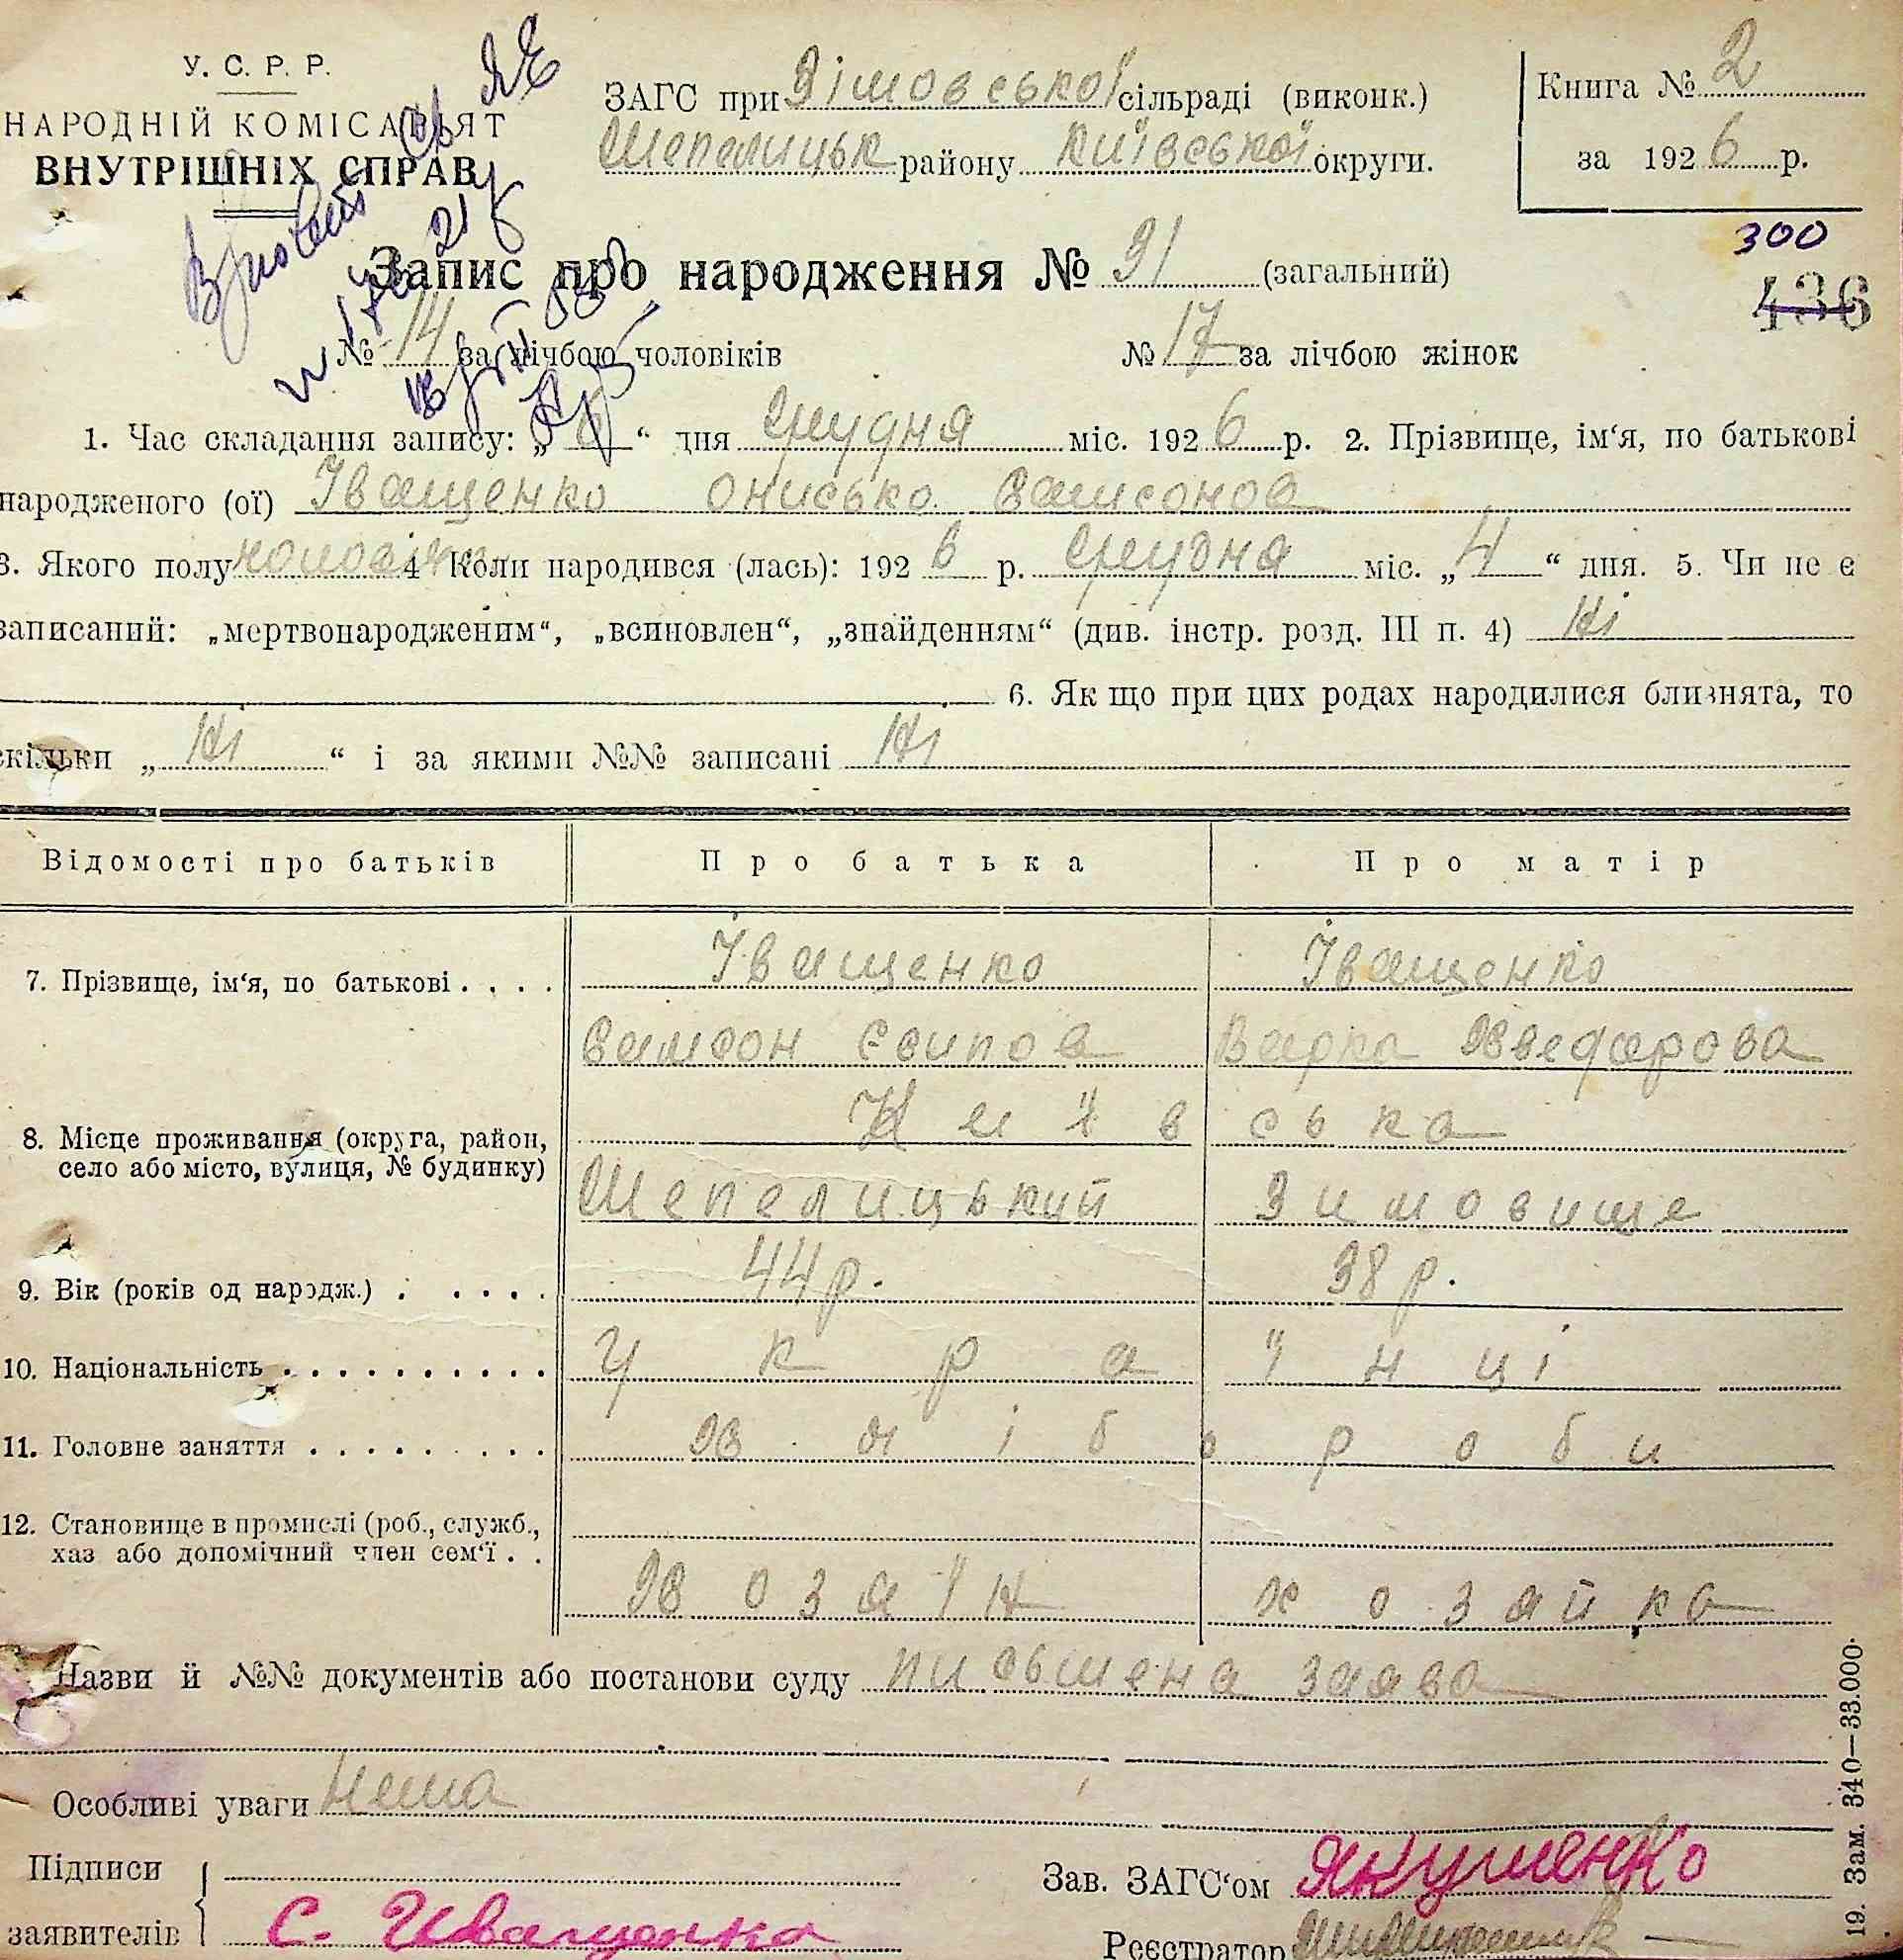 У. С. Р. Р.
НАРОДНІЙ КОМІСАРІЯТ
ВНУТРІШНІХ СПРАВ
ЗАГС при Зімовської сільраді (виконк.)
Шепелицьк району Київської округи.
Книга № 2
за 1926 р.
300
436
Запис про народження № 31 (загальний)
№ 14 за лічбою чоловіків № 17 за лічбою жінок
1. Час складання запису: „6“ дня Грудня міс. 1926 р. 2. Прізвище, ім‘я, по батькові
народженого (ої) Іващенко Онисько Самсонов
3. Якого полу чоловіч 4. Коли народився (лась): 1926 р. Грудня міс. „4“ дня. 5. Чи не є
записаний: „мертвонародженим“, „всиновлен“, „знайденням“ (див. інстр. розд. III п. 4) Ні
6. Як що при цих родах народилися близнята, то
скільки „Ні“ і за якими №№ записані Ні
Відомості про батьків Про батька Про матір
7. Прізвище, ім‘я, по батькові . . . . Іващенко Іващенко
Самсон Єсипов Варка Хведорова
8. Місце проживання (округа, район, Київська
село або місто, вулиця, № будинку) Шепелицький Зимовище
9. Вік (років од народж.) . . . . . 44 р. 38 р.
10. Національність . . . . . . . . . . Українці
11. Головне заняття . . . . . . . . . Хлібороби
12. Становище в промислі (роб., служб.,
хаз або допомічний член сем‘ї . . Хозяїн хозяйка
Назви й №№ документів або постанови суду письмена заява
Особливі уваги Нема
Підписи
заявителів С. Иващенко
Зав. ЗАГС‘ом Якушенко
Реєстратор
19. Зам. 340—33.000.